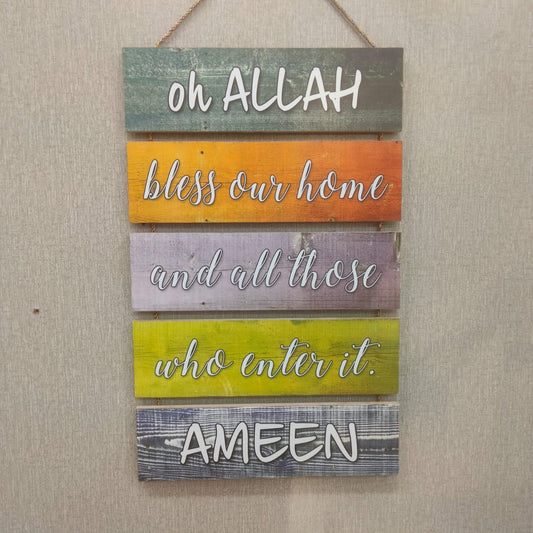 oh ALLAH
bless our home
and all those
who enter it.
AMEEN